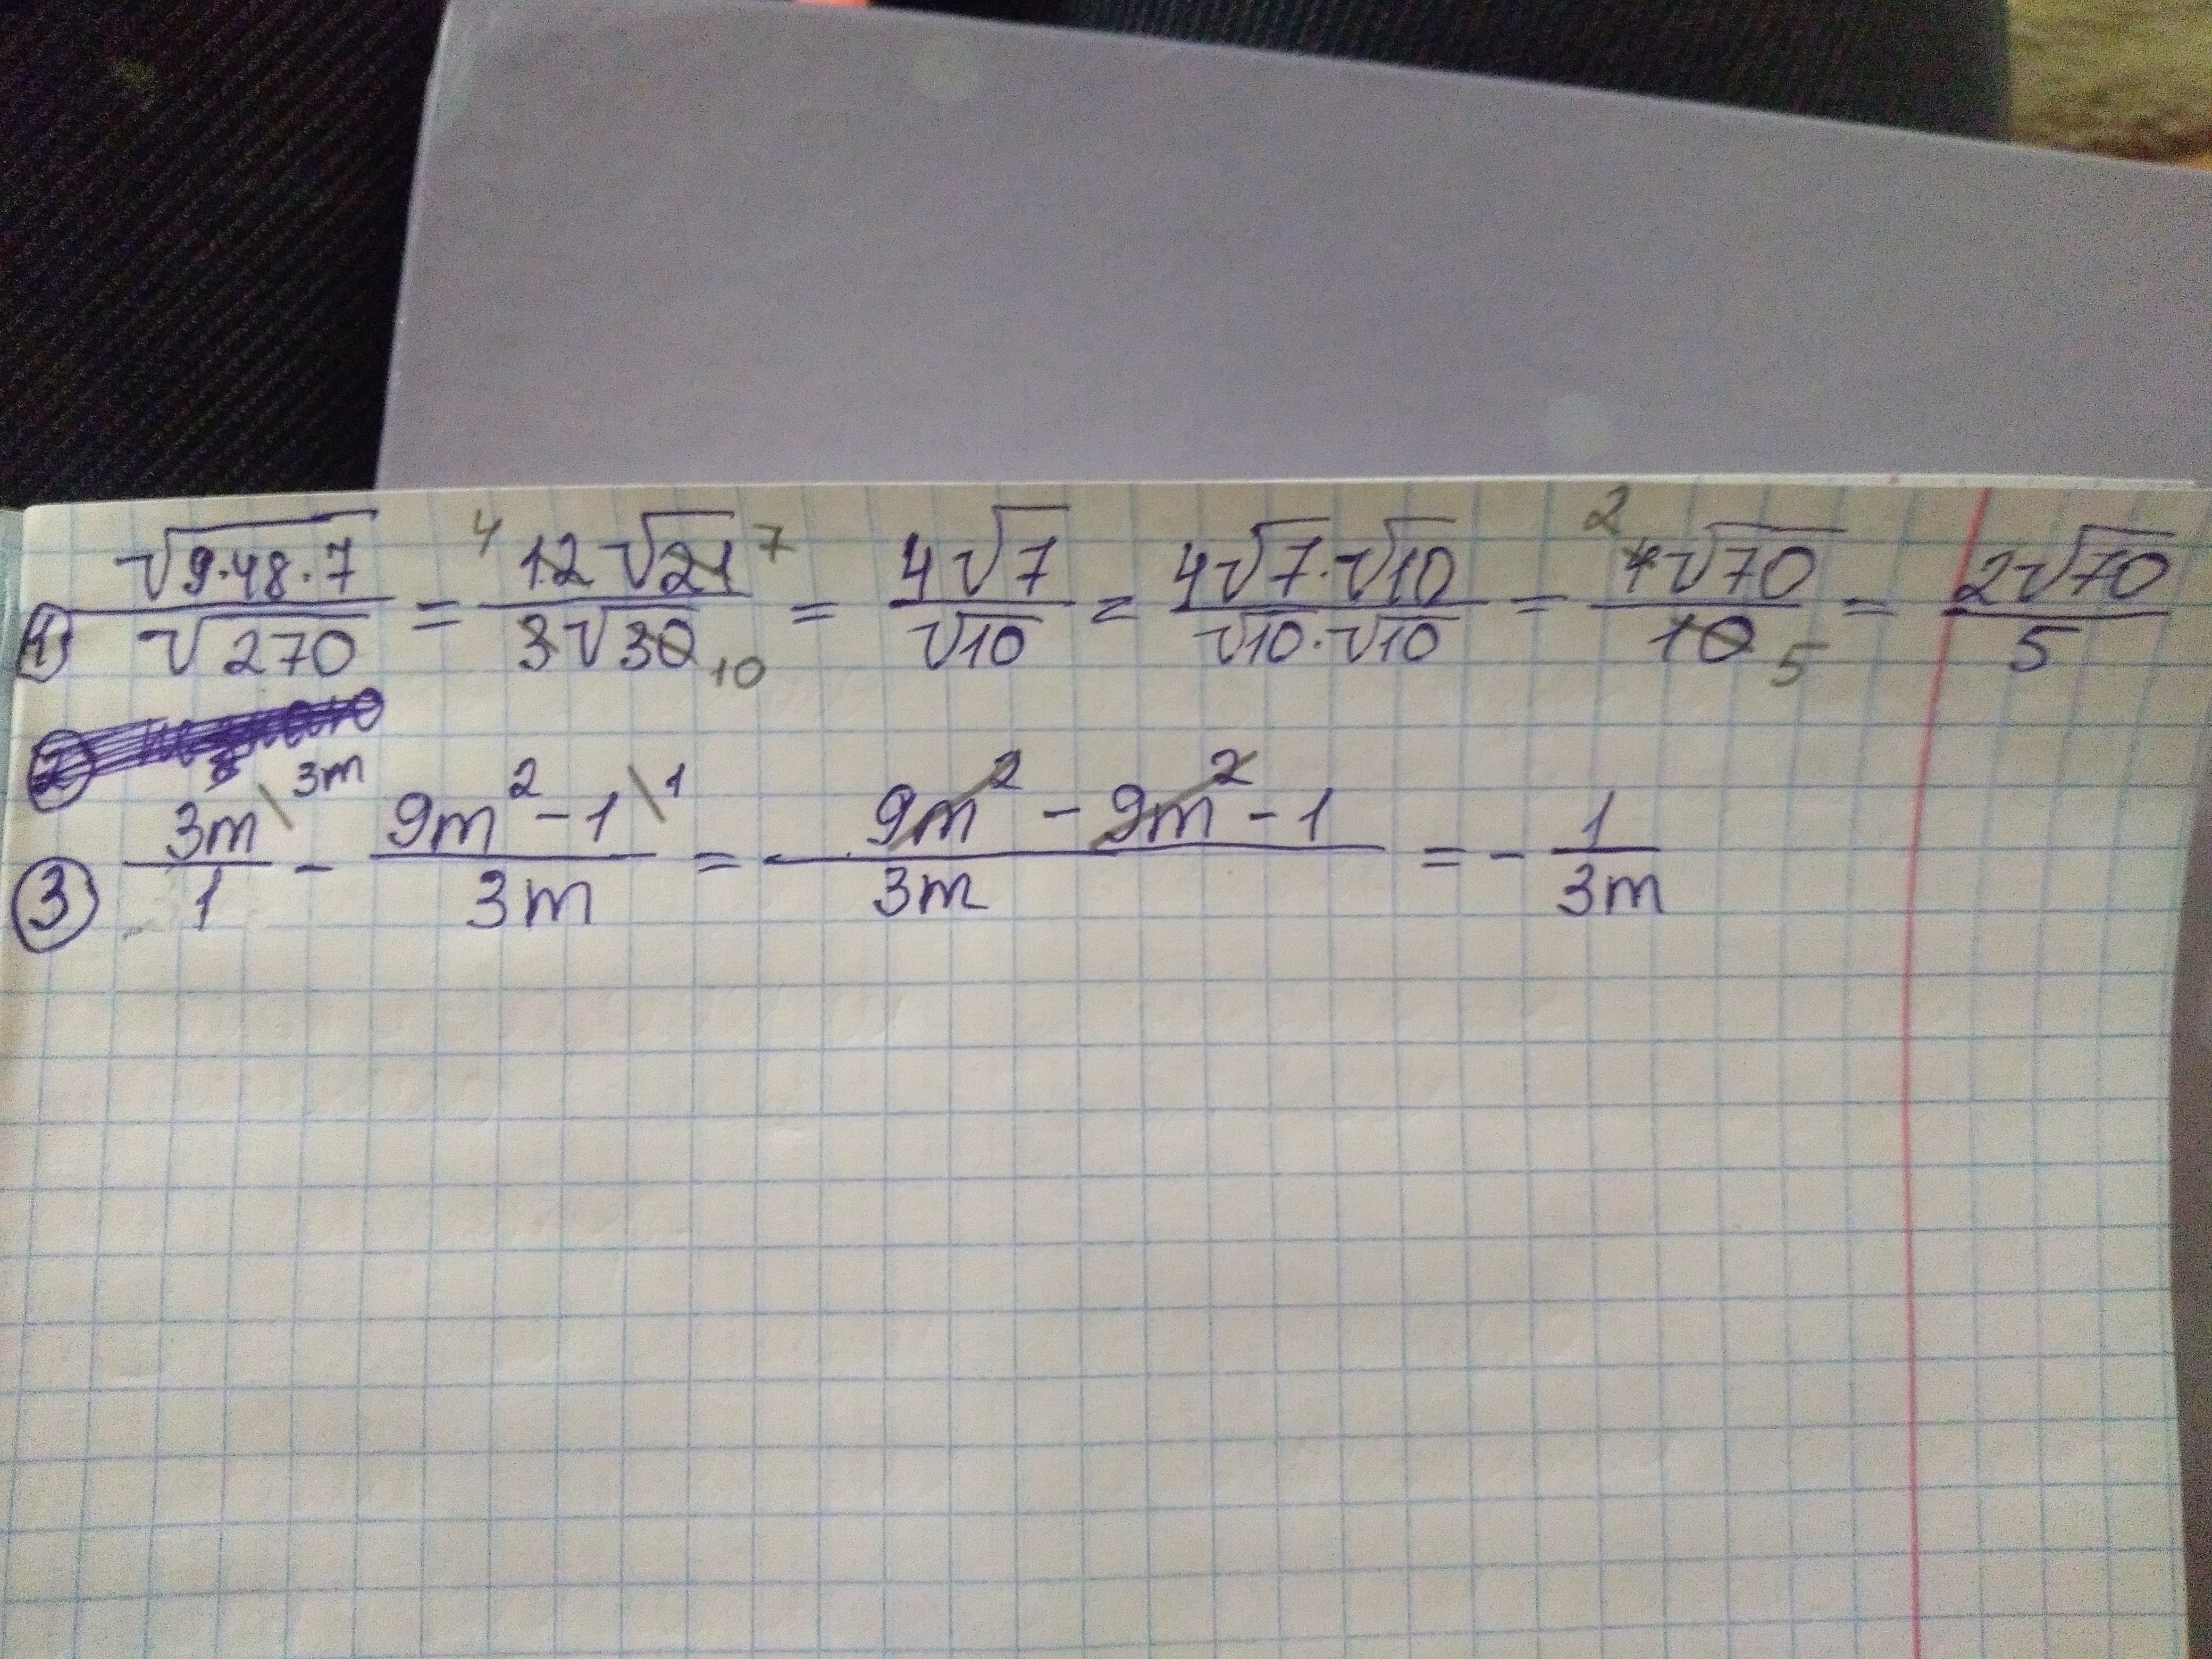 ① √(9·48·7)/√270 = ⁴12√21 ⁷/3√30 ₁₀ = 4√7/√10 = 4√7·√10/√10·√10 = ²4√70/10 ₅ = 2√70/5
②
③ 3m\3m/1 - 9m²-1\1/3m = 9m² - 9m² - 1/3m = - 1/3m